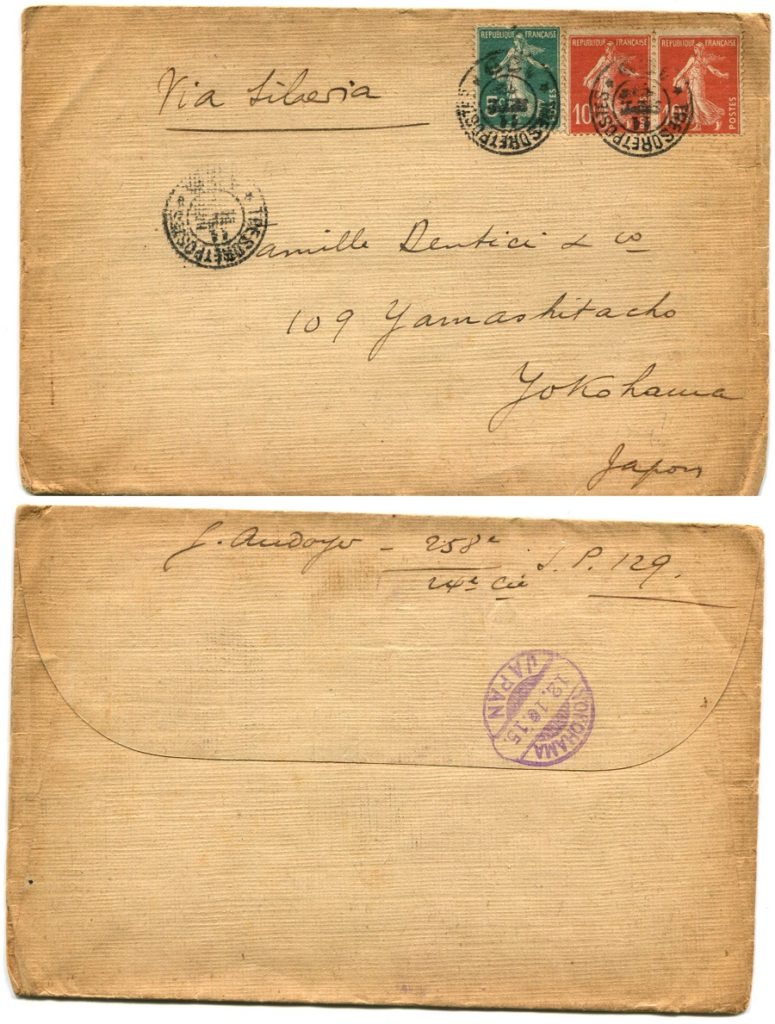 Via Siberia
REPUBLIQUE FRANÇAISE
REPUBLIQUE FRANÇAISE
REPUBLIQUE FRANÇAISE
5
10
10
POSTES
POSTES
TRESOR ET POSTES
TRESOR ET POSTES
TRESOR ET POSTES
Famille Dentici & Co
109 Yamashitacho
Yokohama
Japon
258e S.P. 129.
24e Cie
YOKOHAMA
12.10.15
JAPAN